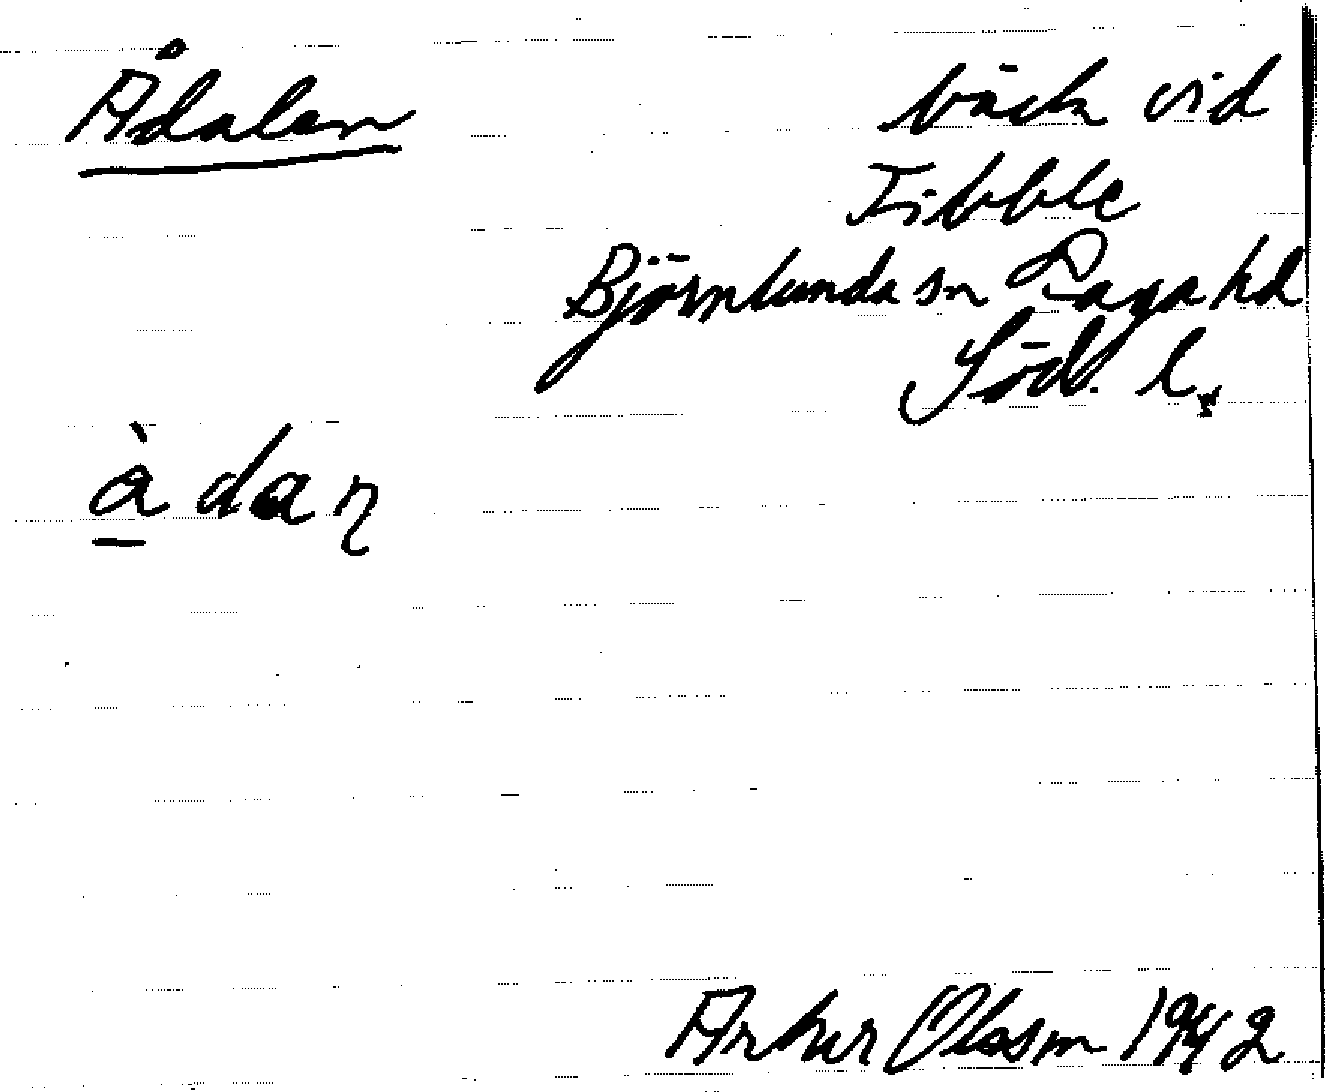 Ådalen
bäck vid
Fibble
Björnlunda sn Daga hd
Söd. l.
à daɳ
Arthur Olsson 1942